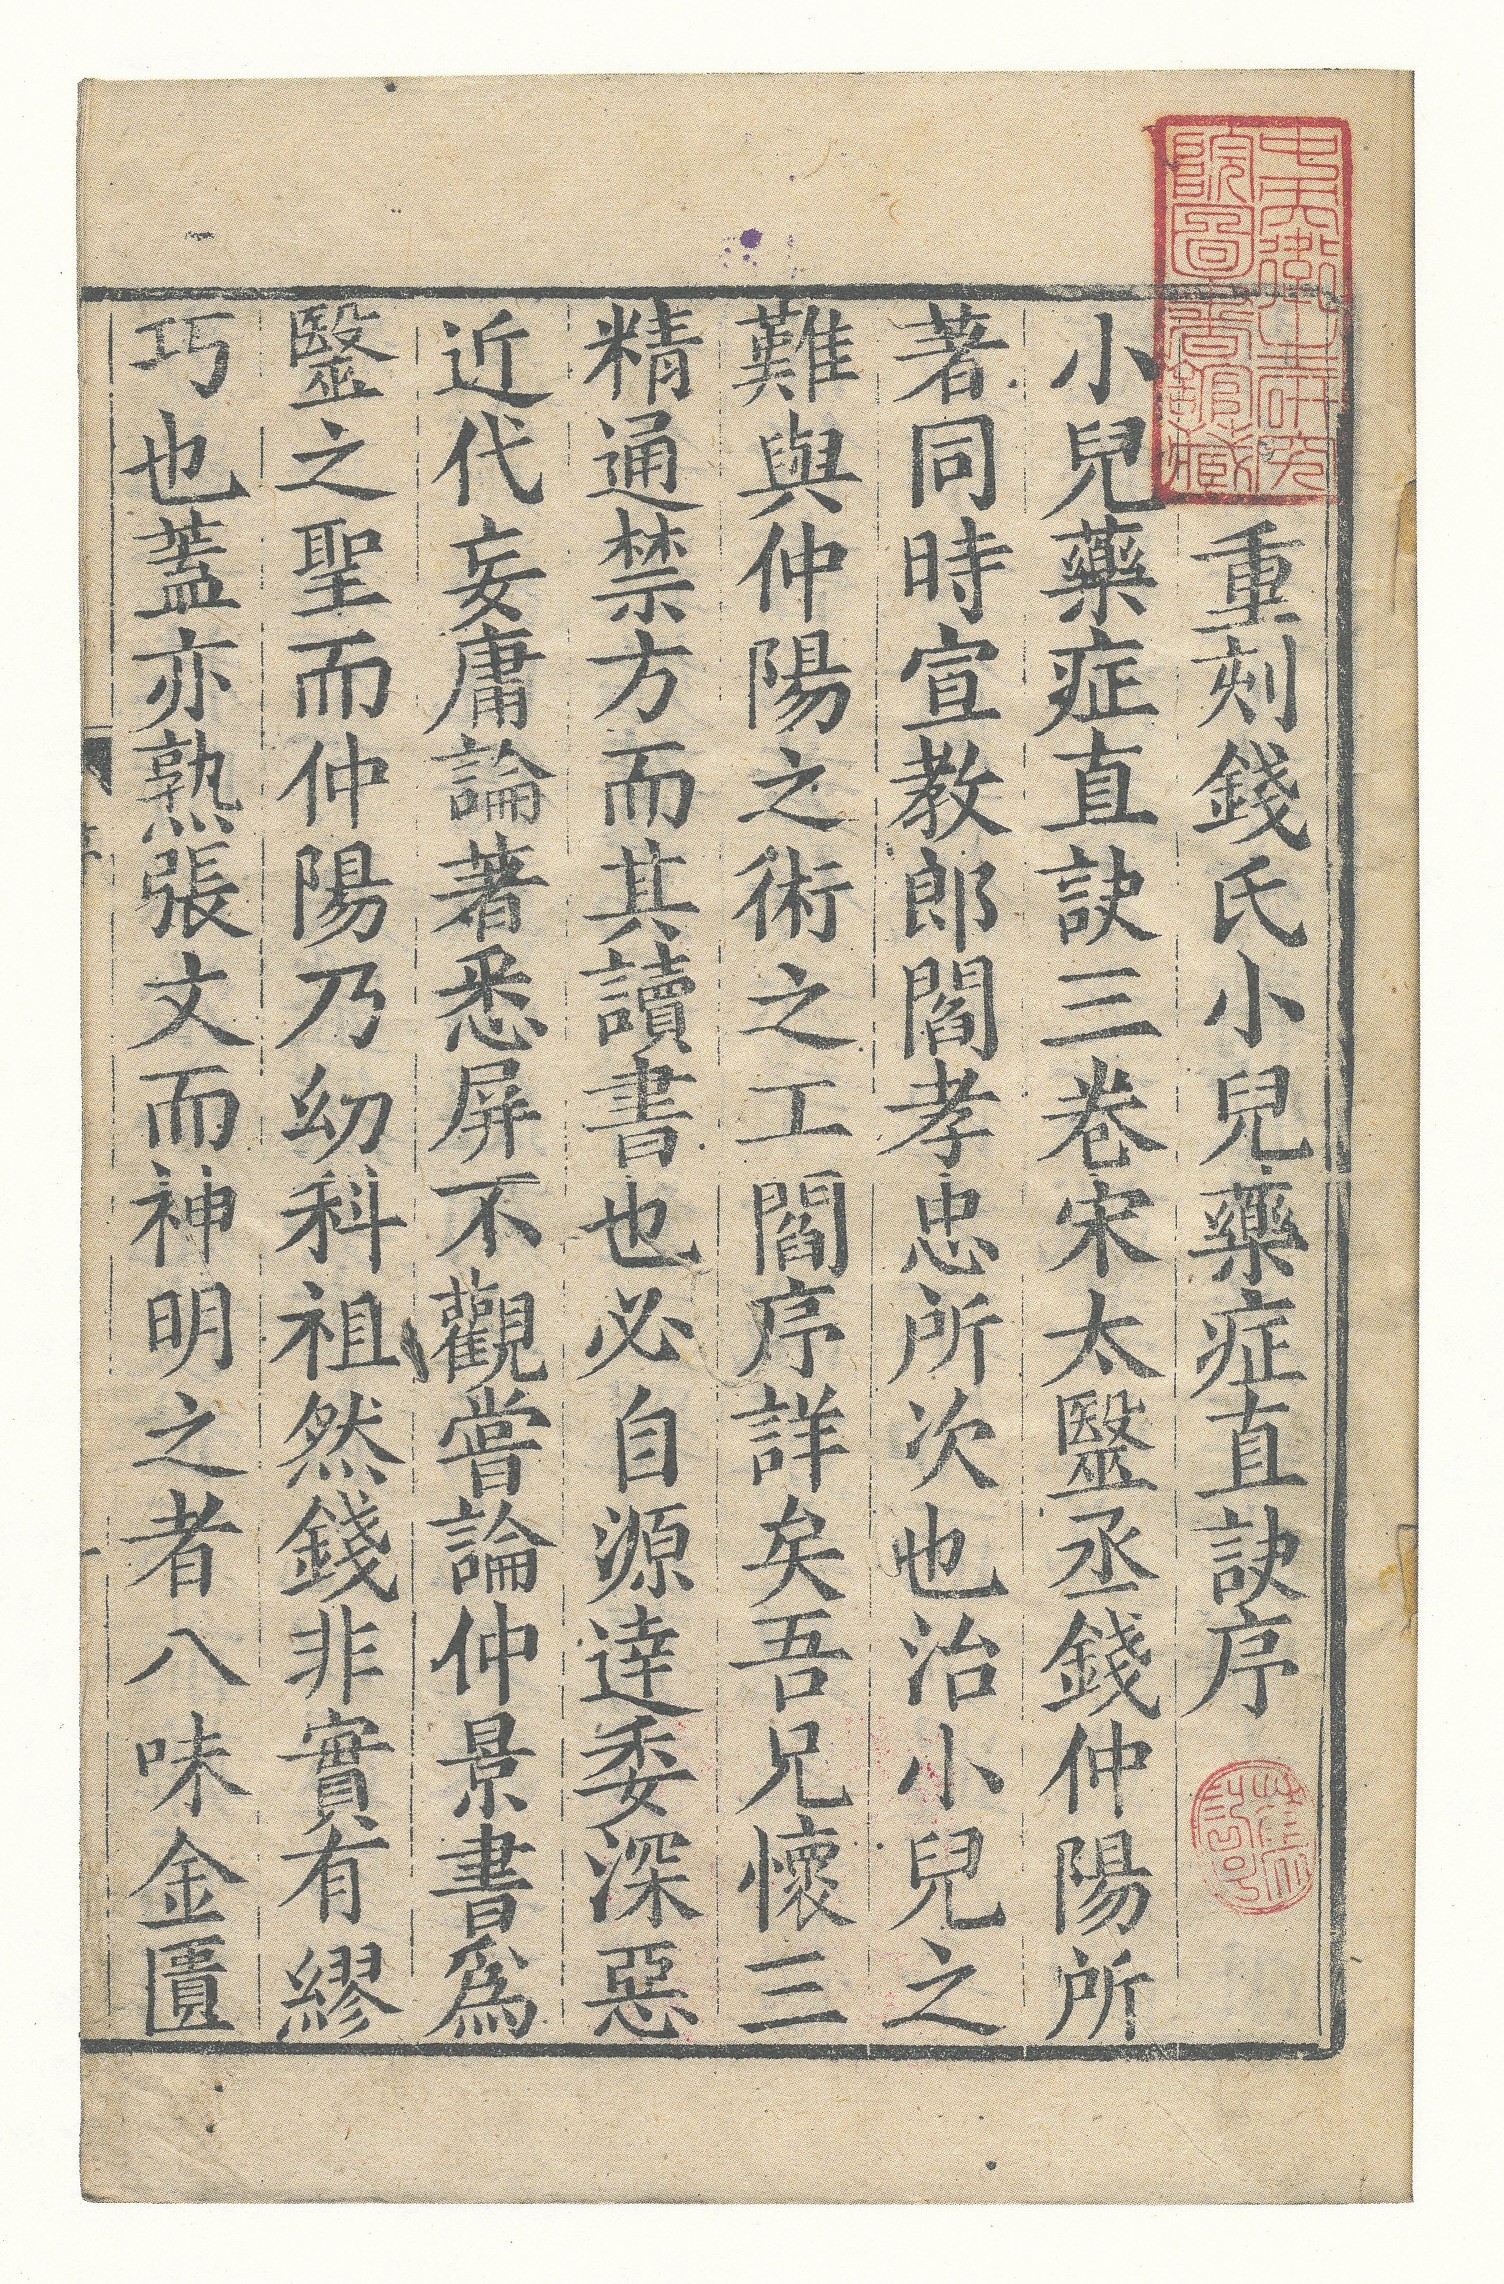 重刻錢氏小兒藥症直訣序
小兒藥症直訣三卷宋太醫丞錢仲陽所
著同時宣教郎閻孝忠所次也治小兒之
難與仲陽之術之工閻序詳矣吾兄懷三
精通禁方而其讀書也必自源達委深惡
近代妄庸論著悉屏不觀嘗論仲景書爲
毉之聖而仲陽乃幼科祖然錢非實有繆
巧也蓋亦熟張文而神明之者八味金匱
中央衛生研究
院圖書館藏